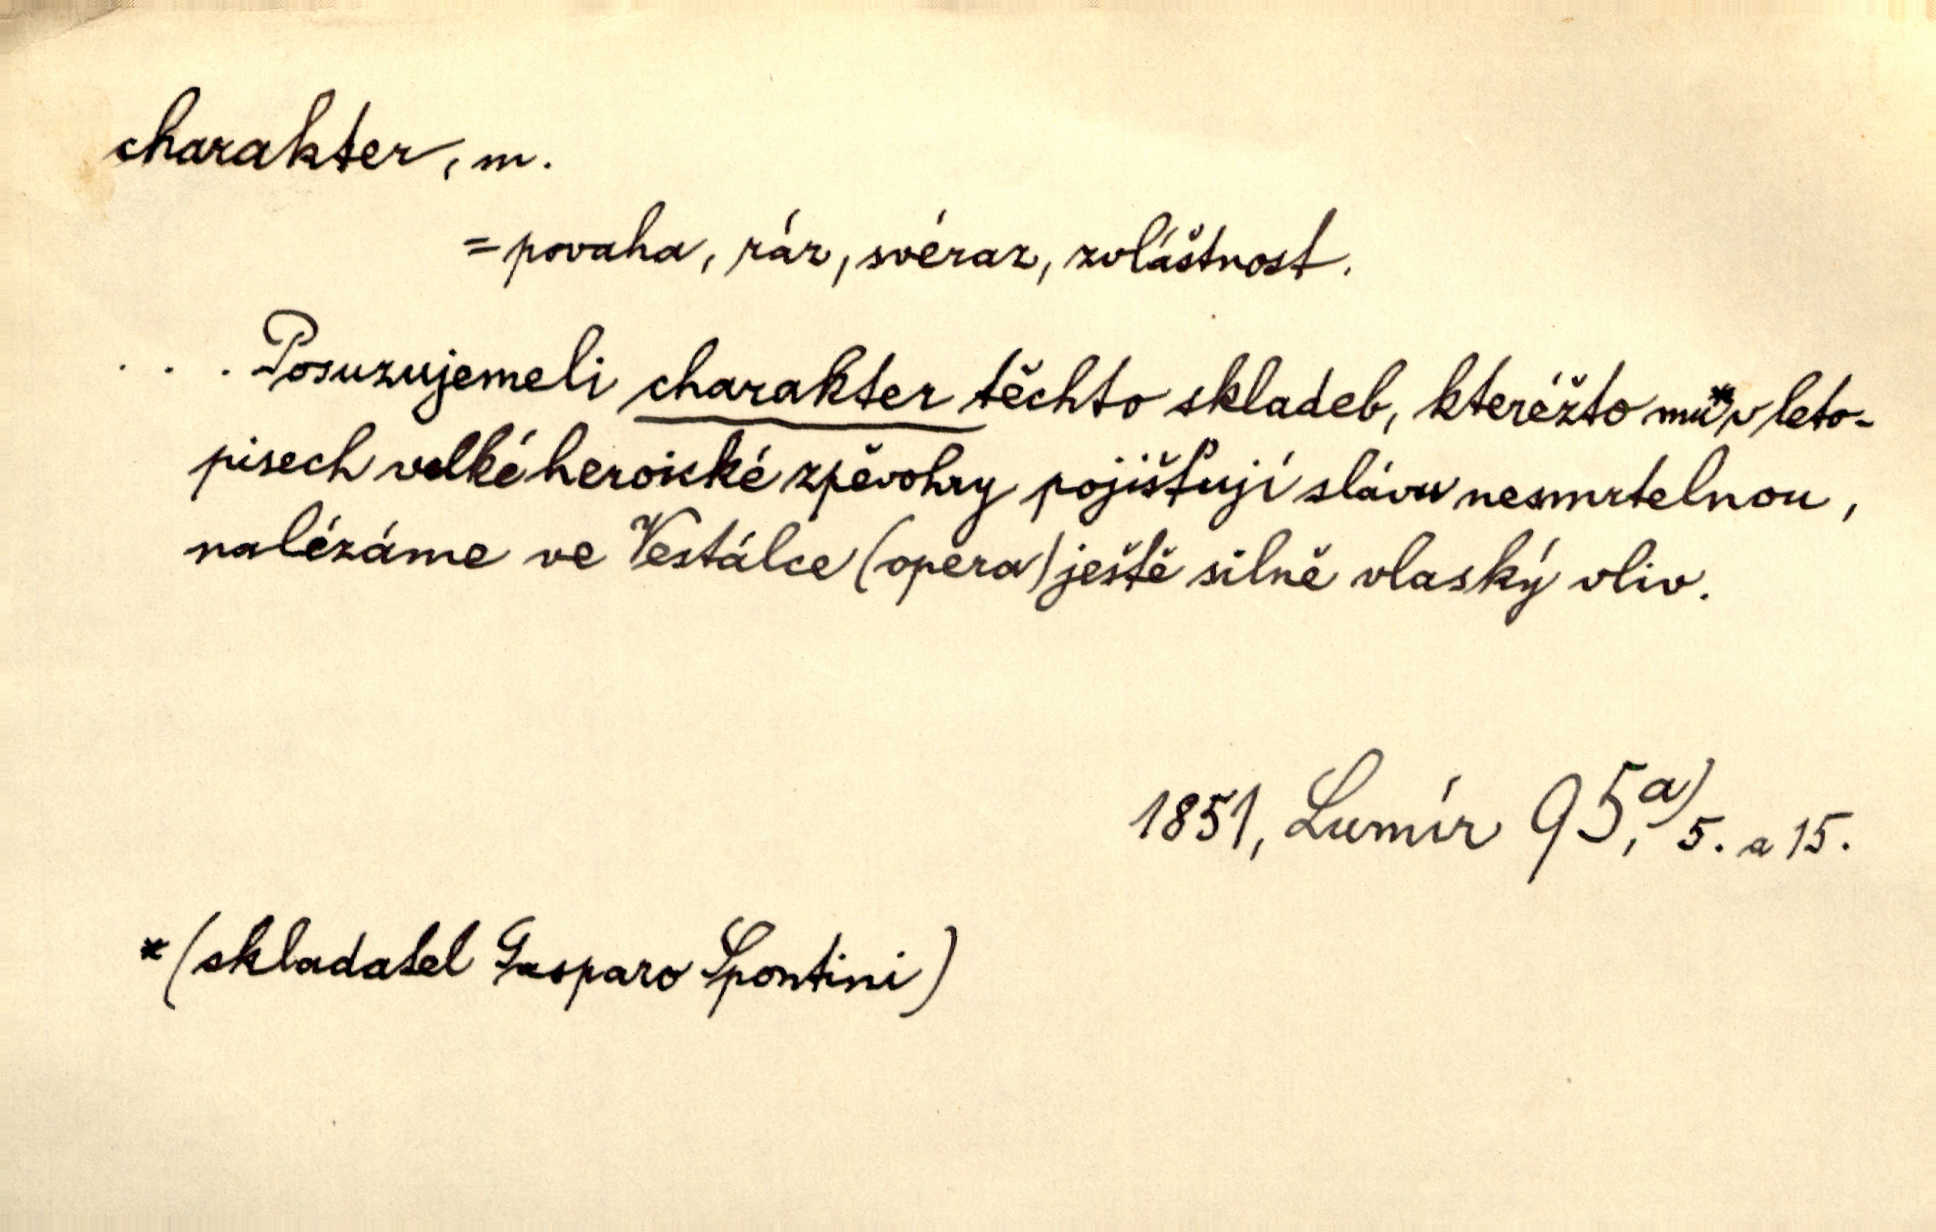 charakter, m.
= povaha, ráz, svéraz, zvláštnost.
. . . Posuzujemeli charakter těchto skladeb, kterěžto mu* v leto-
pisech velké heroické zpěvohry pojišťují slávu nesmrtelnou,
nalézáme ve Vestálce (opera) ještě silně vlaský vliv.
1851, Lumír 95,a) 5. a 15.
* (skladatel Gasparo Spontini)